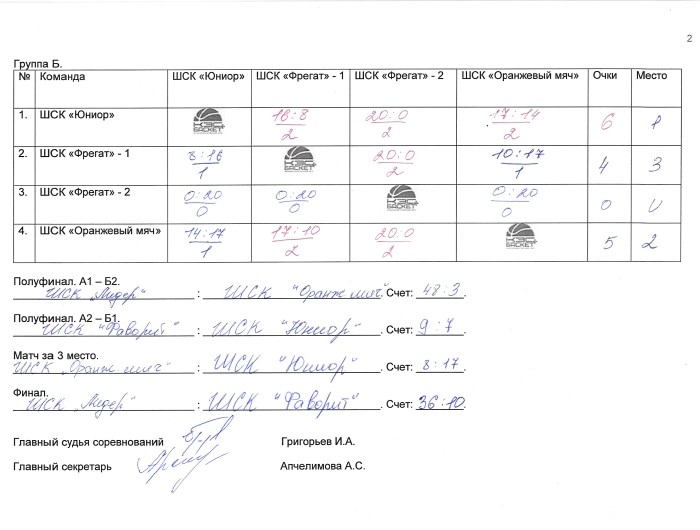 2
Группа Б.
№ Команда ШСК «Юниор» ШСК «Фрегат» - 1 ШСК «Фрегат» - 2 ШСК «Оранжевый мяч» Очки Место
1. ШСК «Юниор» КЭС БАСКЕТ 16:8 2 20:0 2 17:14 2 6 1
2. ШСК «Фрегат» - 1 8:16 1 КЭС БАСКЕТ 20:0 2 10:17 1 4 3
3. ШСК «Фрегат» - 2 0:20 0 0:20 0 КЭС БАСКЕТ 0:20 0 0
4. ШСК «Оранжевый мяч» 14:17 1 17:10 2 20:0 2 КЭС БАСКЕТ 5 2
Полуфинал. А1 – Б2.
ШСК "Лидер" : ШСК "Оранж мяч". Счет: 48:3.
Полуфинал. А2 – Б1.
ШСК "Фаворит" : ШСК "Юниор". Счет: 9:7.
Матч за 3 место.
ШСК "Оранж. мяч" : ШСК "Юниор". Счет: 8:17.
Финал.
ШСК "Лидер" : ШСК "Фаворит". Счет: 36:10.
Главный судья соревнований Григорьев И.А.
Главный секретарь Апчелимова А.С.